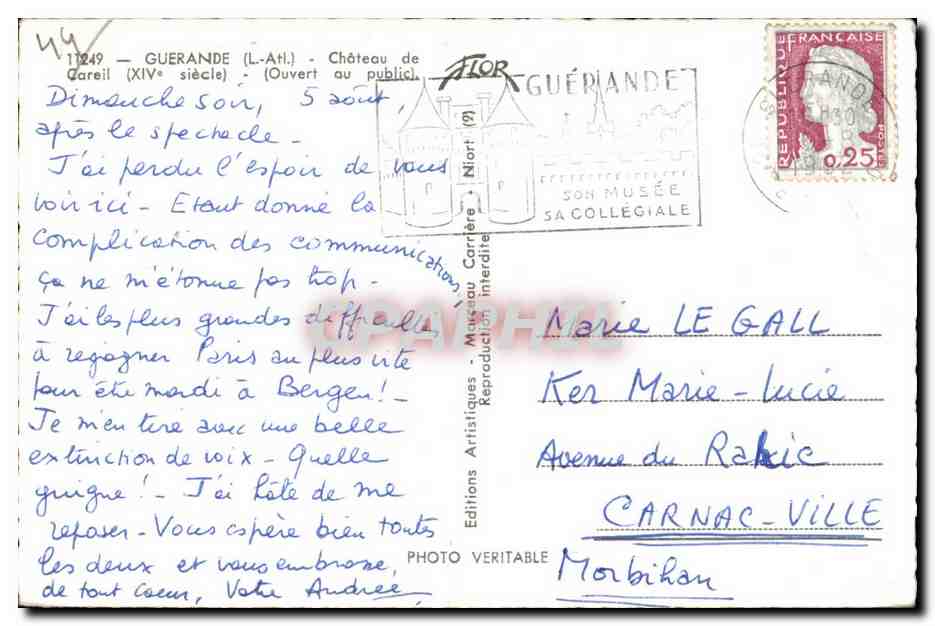 44
11249 — GUERANDE (L.-Atl.) - Château de
Careil (XIVe siècle) - (Ouvert au public).
Dimanche soir, 5 août,
après le spectacle -
J'ai perdu l'espoir de vous
voir ici - Etant donné la
complication des communications,
ça ne m'étonne pas trop -
J'ai les plus grandes difficultés
à regagner Paris au plus vite
pour être mardi à Bergen! -
Je m'en tire avec une belle
extinction de voix - Quelle
guigne! - J'ai hâte de me
reposer - Vous espère bien toutes
les deux et vous embrasse,
de tout coeur, Votre Andrée
FLOR
Editions Artistiques - Marceau Carrière - Niort (9)
Reproduction interdite
PHOTO VERITABLE
GUÉRANDE
SON MUSÉE
SA COLLÉGIALE
REPUBLIQUE FRANÇAISE
0,25
CPAPHIL
Marie LE GALL
Ker Marie-Lucie
Avenue du
CARNAC-VILLE
Morbihan